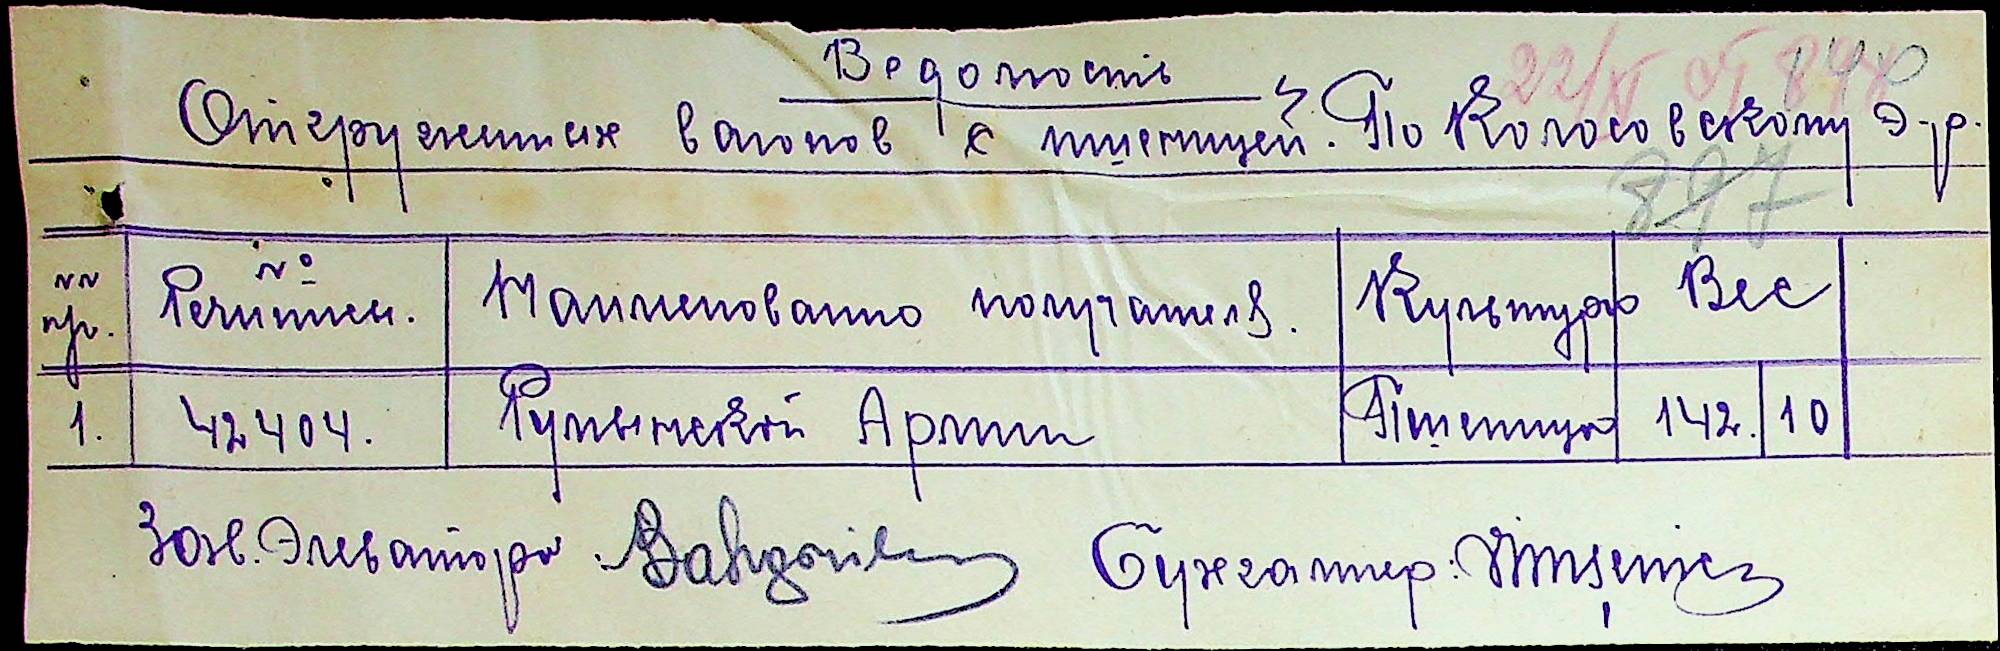 Ведомость
22/XI
Отгруженных вагонов с пшеницей. По Колосовскому Э-ру.
897
NN
пр.
№
Наименование получателя.
Культура
Вес
1.
42404.
Румынской Армии
Пшеница
142.
10
Зав. Элеватора:
Бухгалтер: